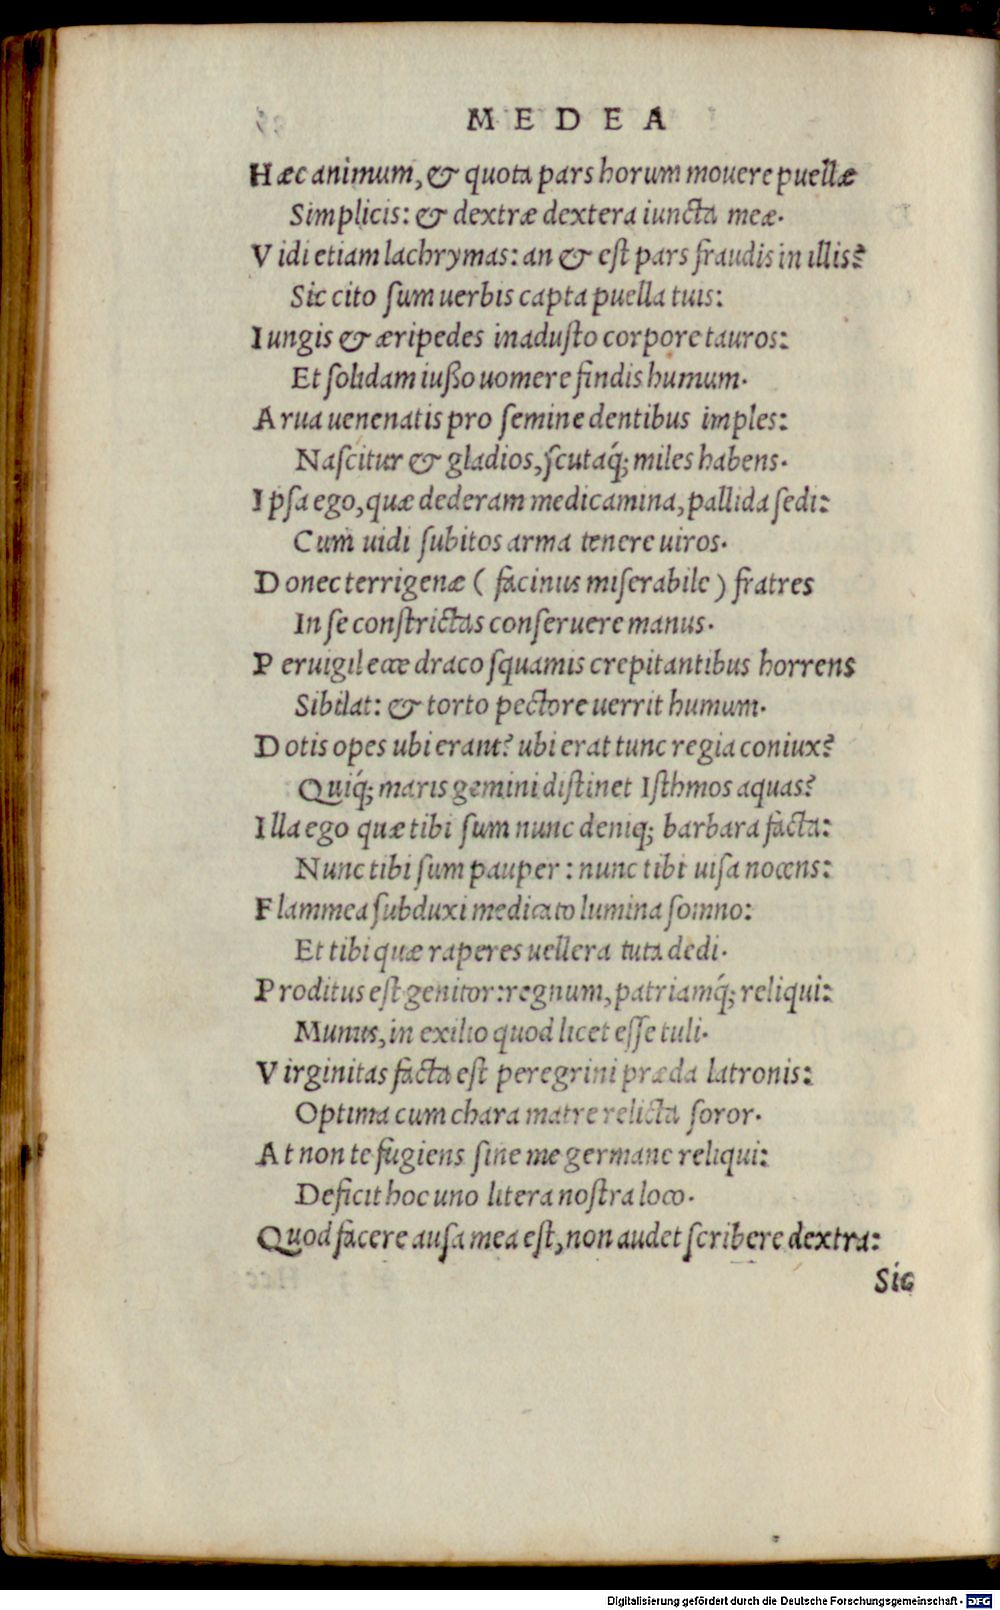 MEDEA
Hæc animum, & quota pars horum mouere puellæ
Simplicis: & dextræ dextera iuncta meæ.
Vidi etiam lachrymas: an & est pars fraudis in illis?
Sic cito sum uerbis capta puella tuis:
Iungis & æripedes inadusto corpore tauros:
Et solidam iusso uomere findis humum.
Arua uenenatis pro semine dentibus imples:
Nascitur & gladios, scutaq́; miles habens.
Ipsa ego, quæ dederam medicamina, pallida sedi:
Cum uidi subitos arma tenere uiros.
Donec terrigenæ ( facinus miserabile ) fratres
In se constrictas conseruere manus.
Peruigil ecce draco squamis crepitantibus horrens
Sibilat: & torto pectore uerrit humum.
Dotis opes ubi erant? ubi erat tunc regia coniux?
Quiq́; maris gemini distinet Isthmos aquas?
Illa ego quæ tibi sum nunc deniq; barbara facta:
Nunc tibi sum pauper: nunc tibi uisa nocens:
Flammea subduxi medicato lumina somno:
Et tibi quæ raperes uellera tuta dedi.
Proditus est genitor: regnum, patriamq́; reliqui:
Munus, in exilio quod licet esse tuli.
Virginitas facta est peregrini præda latronis:
Optima cum chara matre relicta soror.
At non te fugiens sine me germane reliqui:
Deficit hoc uno litera nostra loco.
Quod facere ausa mea est, non audet scribere dextra:
Sic
Digitalisierung gefördert durch die Deutsche Forschungsgemeinschaft - DFG